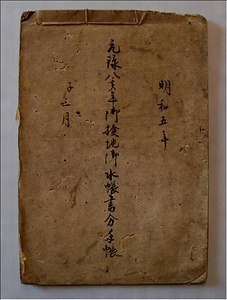 明和五年
元禄八亥年御検地御水帳書分手帳
子三月